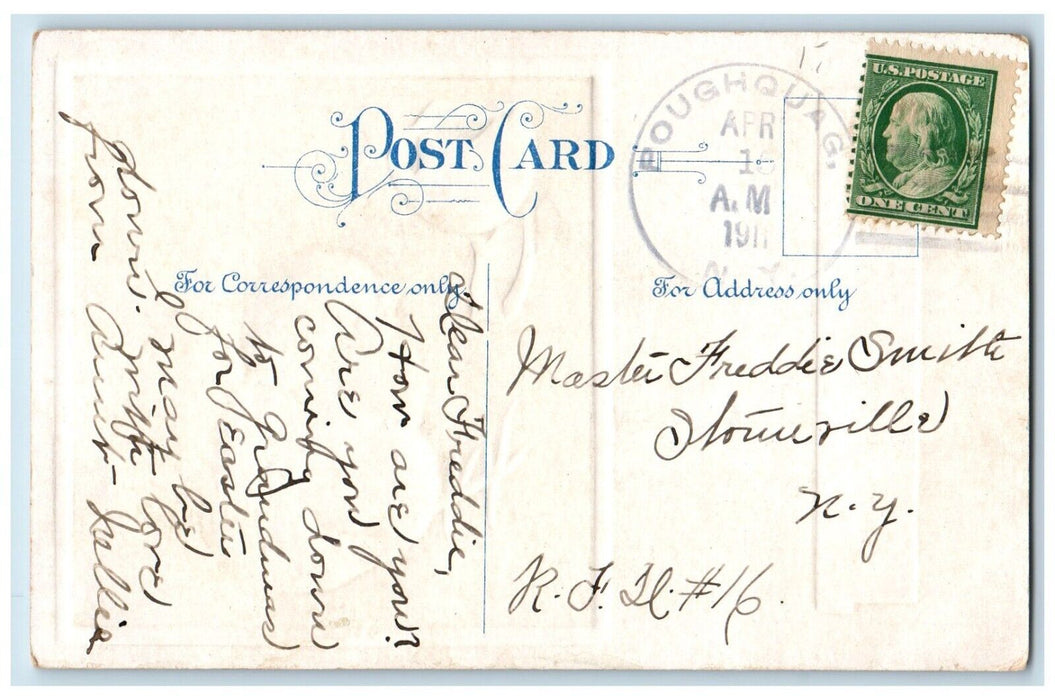 POST CARD
For Correspondence only
For Address only
POUGHQUAG.
APR
A.M
1911
N.Y.
U.S. POSTAGE
ONE CENT
Dear Freddie,
How are you?
Are you
coming down
to Grandmas
for Easter
I may be
down. With love
from Aunt
Master Freddie Smith
Stormville
N.Y.
R.F.D. #16.